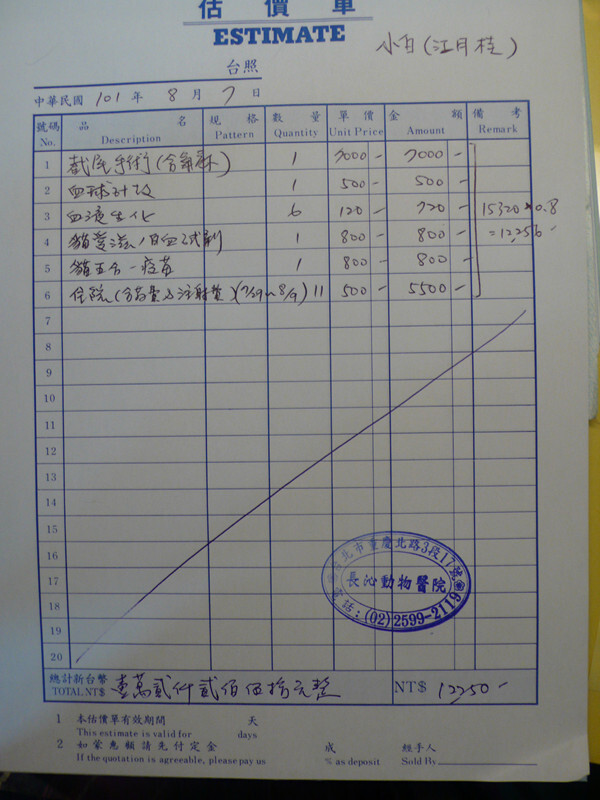 估價單
ESTIMATE
小白(江月桂)
台照
中華民國 101 年 8 月 7 日
號碼 No. 品名 Description 規格 Pattern 數量 Quantity 單價 Unit Price 金額 Amount 備考 Remark
1 截尾手術(含氣麻) 1 7000- 7000-
2 血球計放 1 500- 500-
3 血液生化 6 120- 720- 15320×0.8
4 貓愛滋/白血試劑 1 800- 800- =12256-
5 貓五合一疫苗 1 800- 800-
6 住院(含葯費及注射費)(7/29~8/9) 11 500- 5500-
7
8
9
10
11
12
13
14
15
16
17
18
19
20
北市重慶北路3段17號
長沁動物醫院
電話:(02)2599-2119
總計新台幣 TOTAL NT$ 壹萬貳仟貳佰伍拾元整 NT$ 12250-
1 本估價單有效期間 天
This estimate is valid for days
2 如蒙惠顧請先付定金 成 經手人
If the quotation is agreeable, please pay us % as deposit Sold By